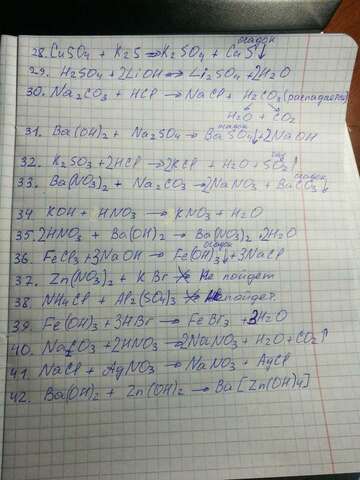 осадок
28. CuSO4 + K2S → K2SO4 + CuS↓
29. H2SO4 + 2LiOH → Li2SO4 + 2H2O
30. Na2CO3 + HCl → NaCl + H2CO3 (распадается)
H2O + CO2
осадок
31. Ba(OH)2 + Na2SO4 → BaSO4↓ + 2NaOH
газ
32. K2SO3 + 2HCl → 2KCl + H2O + SO2↑
осадок
33. Ba(NO3)2 + Na2CO3 → 2NaNO3 + BaCO3↓
34. KOH + HNO3 → KNO3 + H2O
35. 2HNO3 + Ba(OH)2 → Ba(NO3)2 + 2H2O
осадок
36. FeCl3 + 3NaOH → Fe(OH)3↓ + 3NaCl
37. Zn(NO3)2 + KBr Не пойдет
38. NH4Cl + Al2(SO4)3 Не пойдет.
39. Fe(OH)3 + 3HBr → FeBr3 + 3H2O
40. Na2CO3 + 2HNO3 → 2NaNO3 + H2O + CO2↑
41. NaCl + AgNO3 → NaNO3 + AgCl
42. Ba(OH)2 + Zn(OH)2 → Ba[Zn(OH)4]